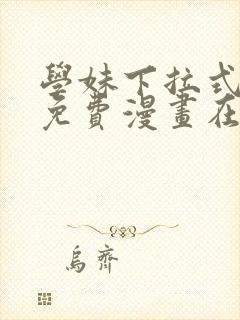 學妹下拉式
免費漫畫在
烏齊